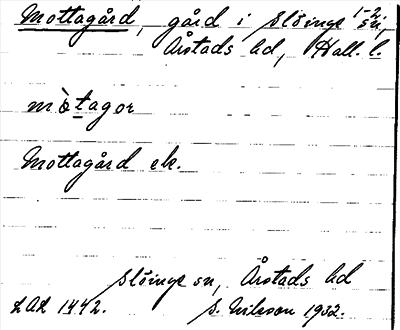 Mottagård, gård i Slöinge sn, 1-2,
Årstads hd, Hall. l.
mòtagor
Mottagård ek.
Slöinge sn, Årstads hd
LAL 1442. S. Nilsson 1932.